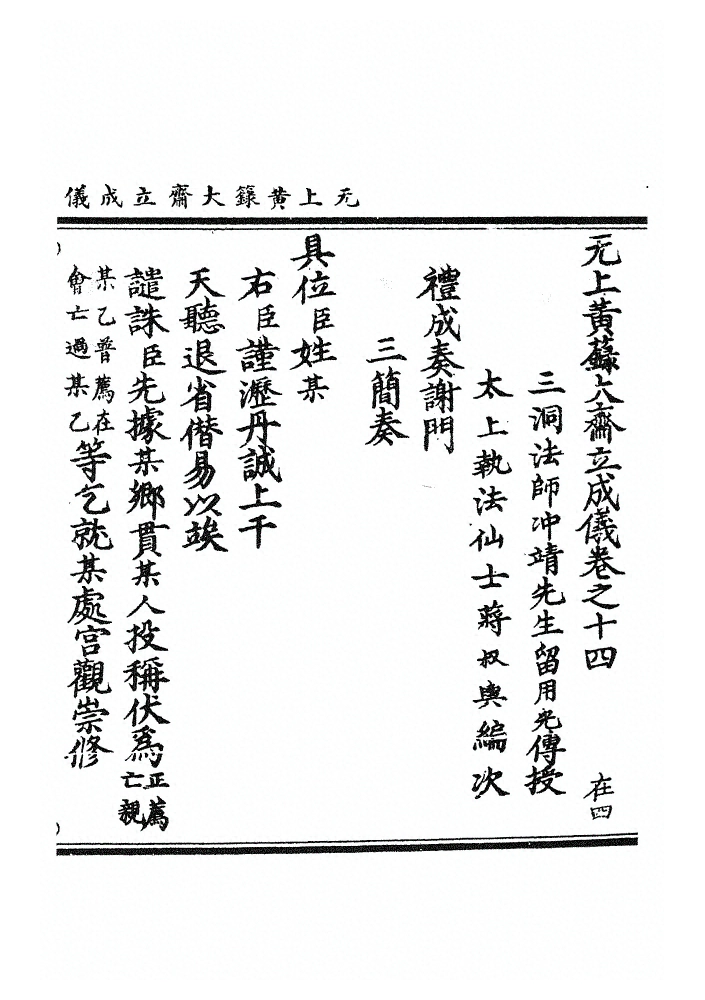 无上黃籙大齋立成儀
无上黃籙大齋立成儀卷之十四 在四
三洞法師冲靖先生留用光傳授
太上執法仙士蔣叔輿編次
禮成奏謝門
三簡奏
具位臣姓某
右臣謹瀝丹誠上干
天聽退省僭易以竢
譴誅臣先據某鄉貫某人投稱伏爲正薦亡親
某乙普薦在會亡過某乙等乞就某處宫觀崇修